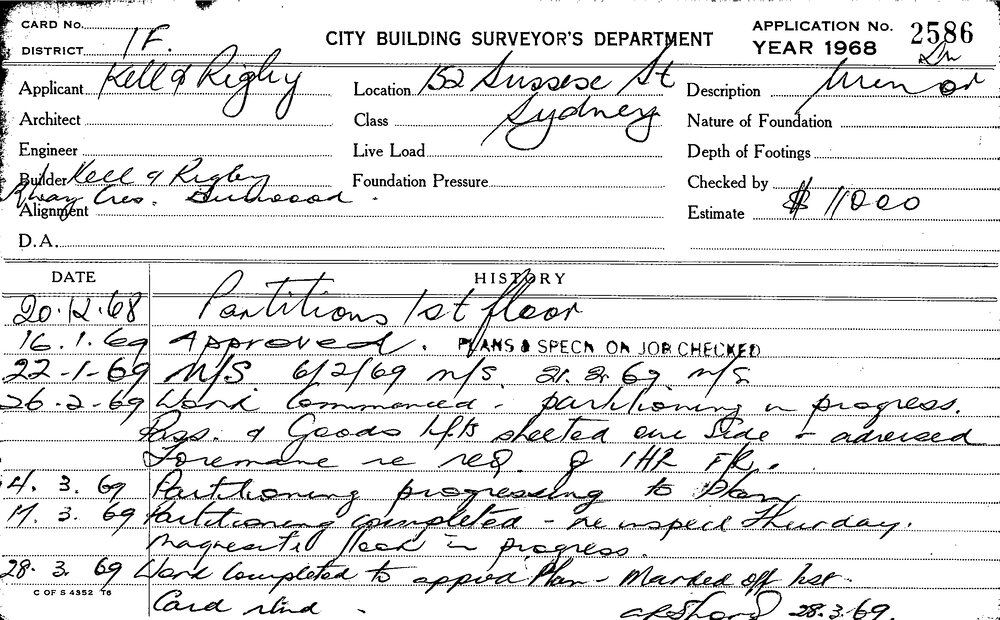 CARD No.
DISTRICT 1F.
CITY BUILDING SURVEYOR'S DEPARTMENT
APPLICATION No. 2586
YEAR 1968
Applicant Kell & Rigby
Location 152 Sussex St
Description Minor
Architect
Class Sydney
Nature of Foundation
Engineer
Live Load
Depth of Footings
Builder Kell & Rigby
Foundation Pressure
Checked by
Rlway Cres. Burwood.
Alignment
Estimate $ 11000
D.A.
DATE HISTORY
20.12.68 Partitions 1st floor
16.1.69 Approved. PLANS & SPECN ON JOB CHECKED
22-1-69 N/S. 6/2/69 N/S. 21.2.69 N/S
26-2-69 Work Commenced - partitioning in progress.
Pass. & Goods lifts sheeted one side & advised
Foreman re req. of 1HR FR.
4. 3. 69 Partitioning progressing to plan
17. 3. 69 Partitioning completed - re inspect Thursday.
magnesite floor in progress.
28. 3. 69 Work completed to apprvd Plan - Marked off list
C OF S 4352 T6
Card rtnd - 28.3.69.